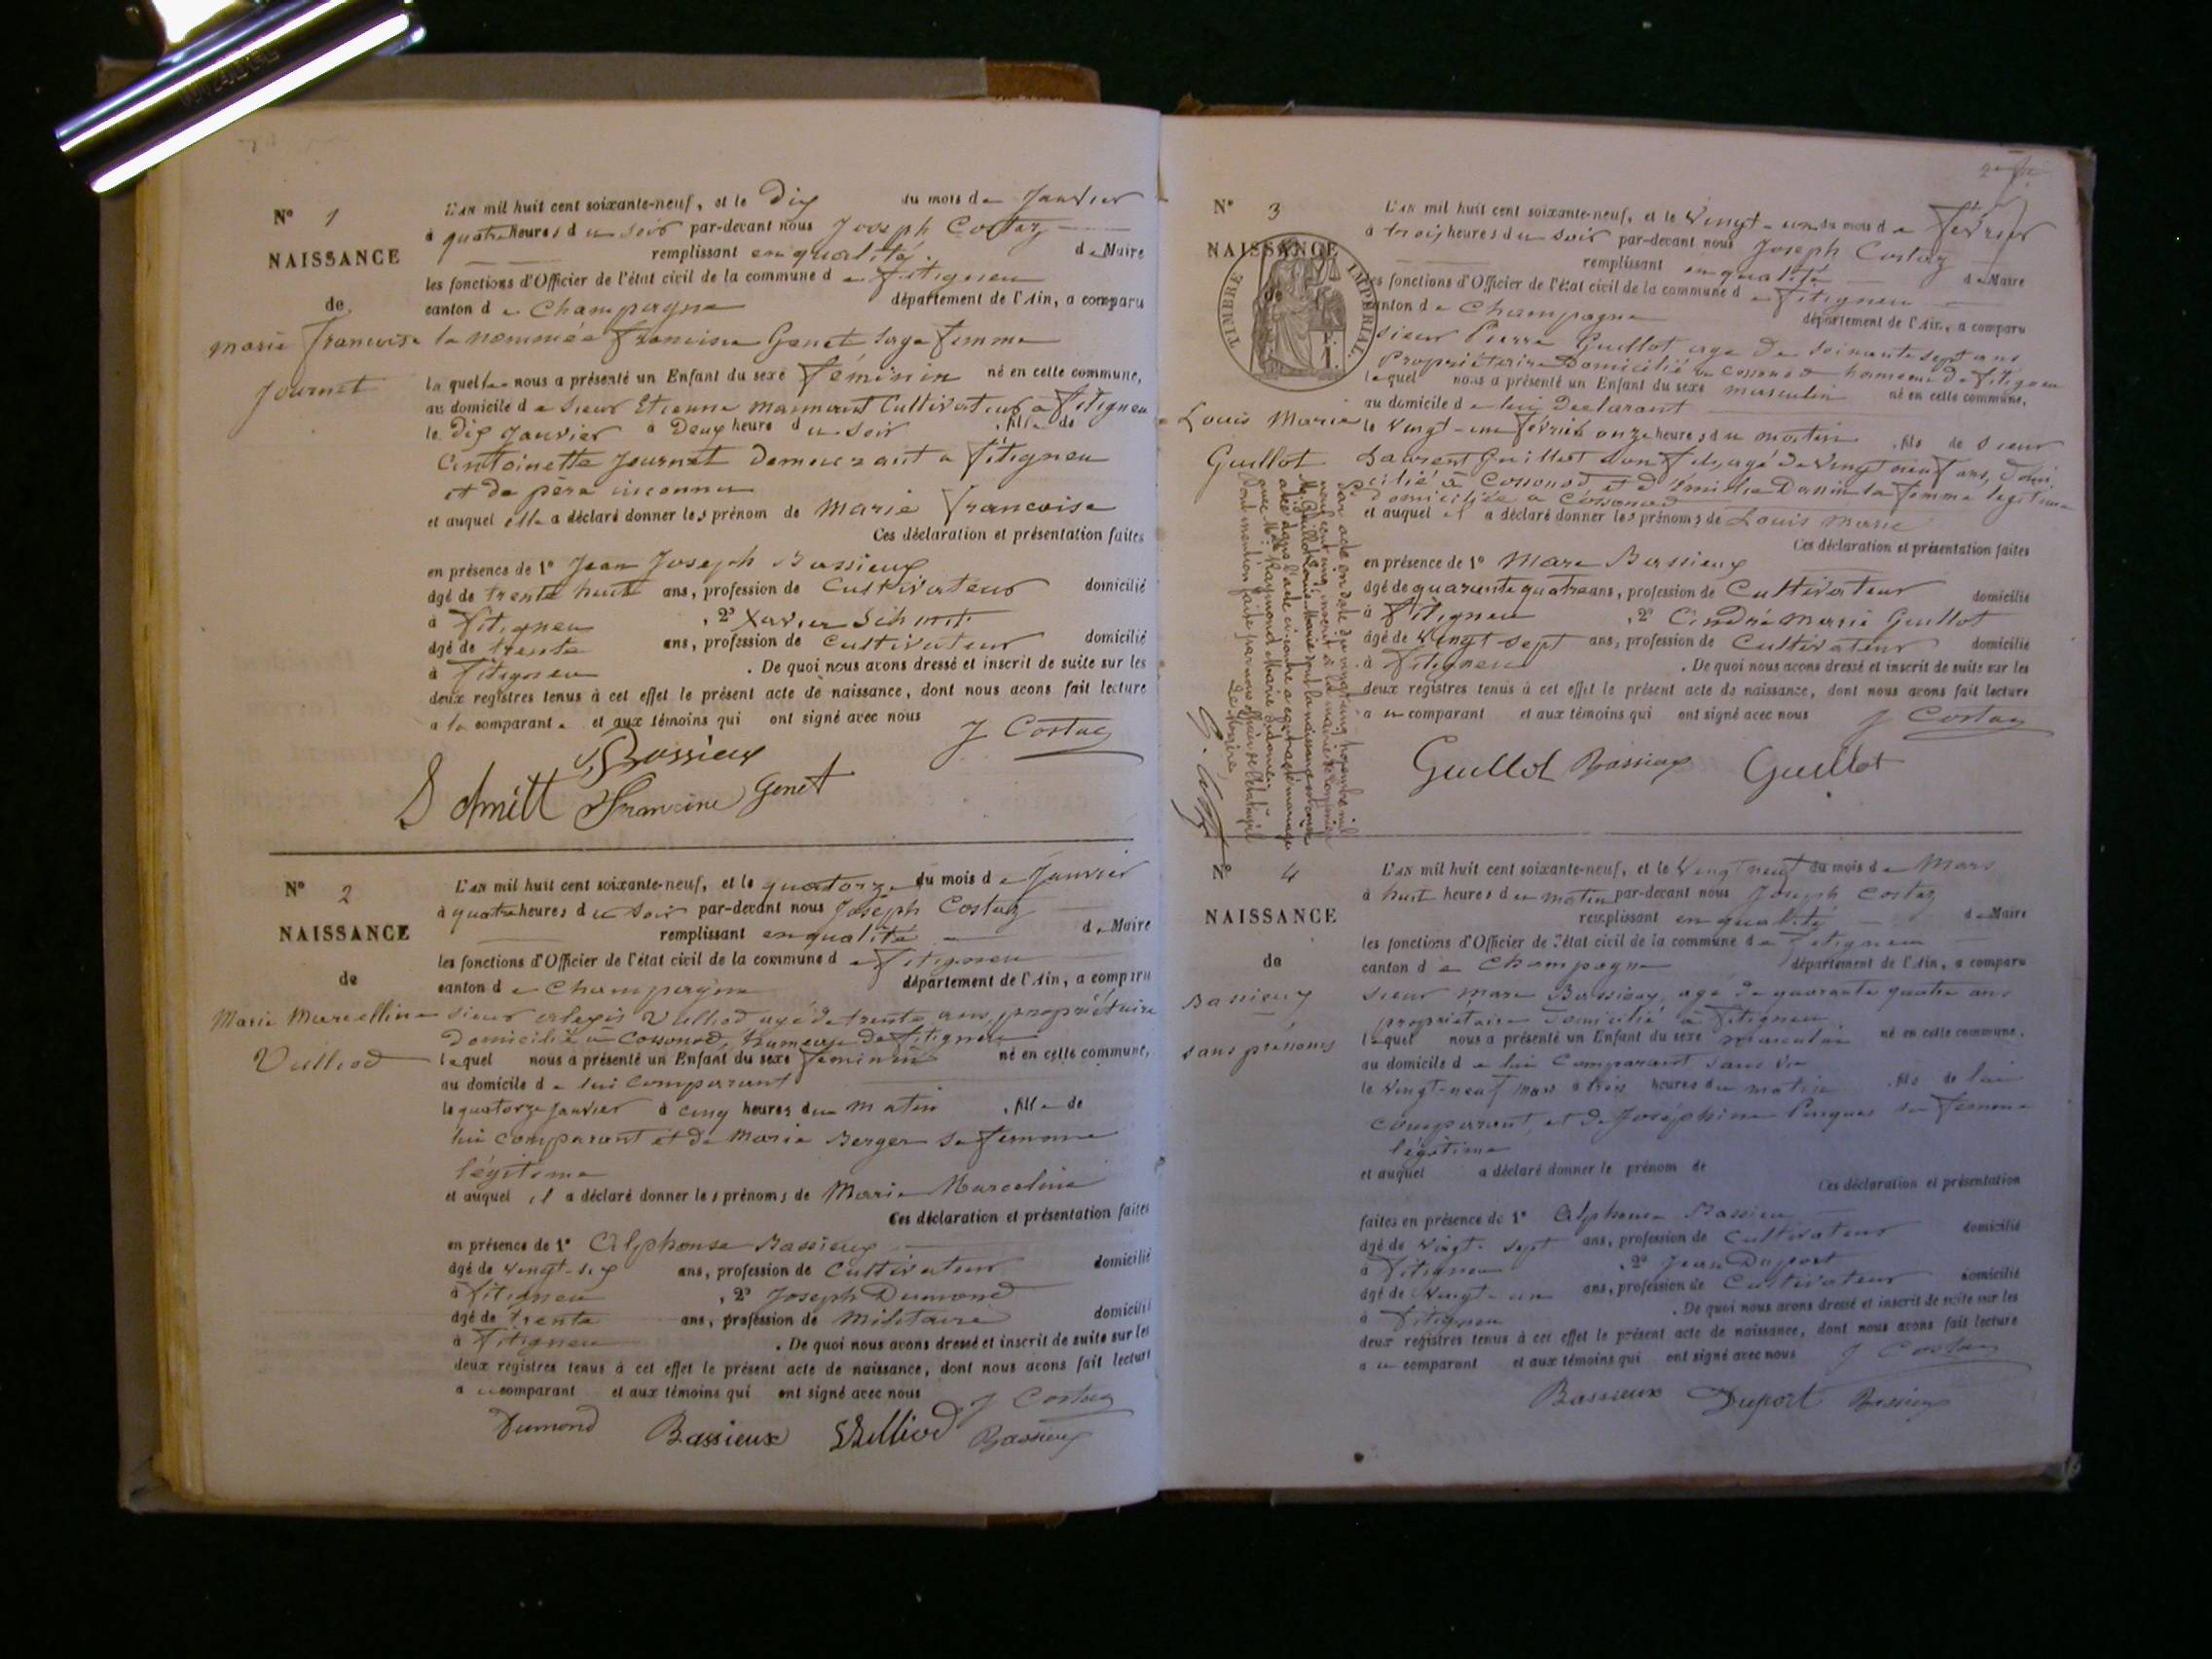 N° 1
NAISSANCE
de
Marie Francoise
Journet
L'AN mil huit cent soixante-neuf, et le Dix du mois de Janvier
à quatre heures du soir par-devant nous Joseph Costaz
remplissant en qualité de Maire
les fonctions d'Officier de l'état civil de la commune de Fitigneu
canton de Champagne département de l'Ain, a comparu
la nommée Francoise Genet sage femme
laquelle nous a présenté un Enfant du sexe féminin né en cette commune,
au domicile de sieur Etienne Cultivateur a Fitigneu
le dix Janvier à Deux heure du soir , fille de
Antoinette Journet demeurant a Fitigneu
et de père inconnu
et auquel elle a déclaré donner les prénom de Marie Francoise
Ces déclaration et présentation faites
en présence de 1° Jean Joseph Bassieux
âgé de trente huit ans, profession de Cultivateur domicilié
à Fitigneu , 2° Xavier Schmitt
âgé de trente ans, profession de Cultivateur domicilié
à Fitigneu . De quoi nous avons dressé et inscrit de suite sur les
deux registres tenus à cet effet le présent acte de naissance, dont nous avons fait lecture
a la comparante et aux témoins qui ont signé avec nous J Costaz
Bassieux
Schmitt Francine Genet
N° 2
NAISSANCE
de
Marie Marcelline
Vulliod
L'AN mil huit cent soixante-neuf, et le quatorze du mois de Janvier
à quatre heures du soir par-devant nous Joseph Costaz
remplissant en qualité de Maire
les fonctions d'Officier de l'état civil de la commune de Fitigneu
canton de Champagne département de l'Ain, a comparu
sieur Alexis Vulliod agé de trente ans, propriétaire
domicilié à Cossonod, hameau de Fitigneu
lequel nous a présenté un Enfant du sexe féminin né en cette commune,
au domicile de lui comparant
le quatorze Janvier à cinq heures du matin , fille de
lui comparant et de Marie Berger sa femme
légitime
et auquel il a déclaré donner les prénoms de Marie Marceline
Ces déclaration et présentation faites
en présence de 1° Alphonse Bassieux
âgé de vingt-six ans, profession de Cultivateur domicilié
à Fitigneu , 2° Joseph Dumond
âgé de trente ans, profession de Militaire domicilié
à Fitigneu . De quoi nous avons dressé et inscrit de suite sur les
deux registres tenus à cet effet le présent acte de naissance, dont nous avons fait lecture
a u comparant et aux témoins qui ont signé avec nous J Costaz
Dumond Bassieux Vulliod Bassieux
N° 3
NAISSANCE
de
TIMBRE IMPERIAL
Louis Marie
Guillot
L'AN mil huit cent soixante-neuf, et le Vingt-un du mois de Février
à trois heures du soir par-devant nous Joseph Costaz
remplissant en qualité de Maire
les fonctions d'Officier de l'état civil de la commune de Fitigneu
canton de Champagne département de l'Ain, a comparu
sieur Pierre Guillot agé de soixante sept ans
propriétaire Domicilié a Cossonod hameau de Fitigneu
lequel nous a présenté un Enfant du sexe masculin né en cette commune,
au domicile de lui Declarant
le Vingt-un Février onze heures du matin , fils de sieur
Laurent Guillot son fils, agé de vingt neuf ans, domi
cilié à Cossonod et d'Emilie sa femme légitime
domiciliée a Cossonod
et auquel il a déclaré donner les prénoms de Louis Marie
Ces déclaration et présentation faites
en présence de 1° Marc Bassieux
âgé de quarante quatre ans, profession de Cultivateur domicilié
à Fitigneu , 2° André Marie Guillot
âgé de Vingt-sept ans, profession de Cultivateur domicilié
à Fitigneu . De quoi nous avons dressé et inscrit de suite sur les
deux registres tenus à cet effet le présent acte de naissance, dont nous avons fait lecture
a u comparant et aux témoins qui ont signé avec nous J Costaz
Guillot Bassieux Guillot
Par acte en date du vingt cinq novembre mil
neuf cent cinq, inscrit à la mairie de
Mr Guillot Louis Marie dont la naissance est
dans l'acte ci-contre a contracté mariage
avec Mlle Raymond Marie
Dont mention faite par nous officier de l'état civil
Le Maire,
N° 4
NAISSANCE
de
Bassieux
sans prénoms
L'AN mil huit cent soixante-neuf, et le Vingt neuf du mois de Mars
à huit heures du matin par-devant nous Joseph Costaz
remplissant en qualité de Maire
les fonctions d'Officier de l'état civil de la commune de Fitigneu
canton de Champagne département de l'Ain, a comparu
sieur Marc Bassieux, agé de quarante quatre ans
propriétaire domicilié à Fitigneu
lequel nous a présenté un Enfant du sexe masculin né en cette commune,
au domicile de lui comparant sans vie
le vingt-neuf mars à trois heures du matin , fils de lui
comparant, et de Joséphine sa femme
légitime
et auquel a déclaré donner le prénom de
Ces déclaration et présentation
faites en présence de 1° Alphonse Bassieux
âgé de vingt-sept ans, profession de Cultivateur domicilié
à Fitigneu , 2° Jean Duport
âgé de Vingt-un ans, profession de Cultivateur domicilié
à Fitigneu . De quoi nous avons dressé et inscrit de suite sur les
deux registres tenus à cet effet le présent acte de naissance, dont nous avons fait lecture
a u comparant et aux témoins qui ont signé avec nous J Costaz
Bassieux Duport Bassieux